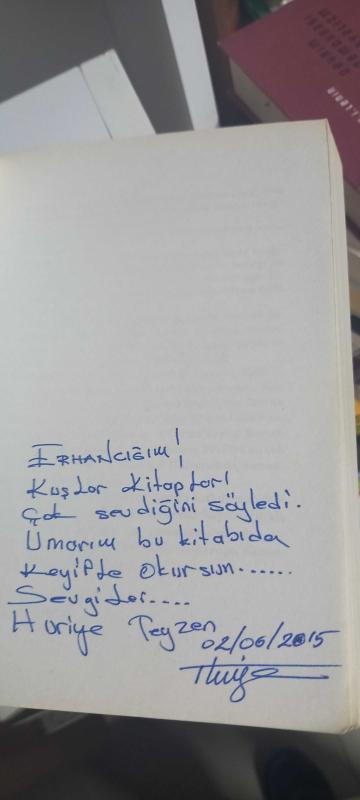 ERHANCIĞIM!
Kuşlar kitapları
Çok sevdiğini söyledi.
Umarım bu kitabıda
Keyifle okursun......
Sevgiler....
Huriye Teyzen
02/06/2015